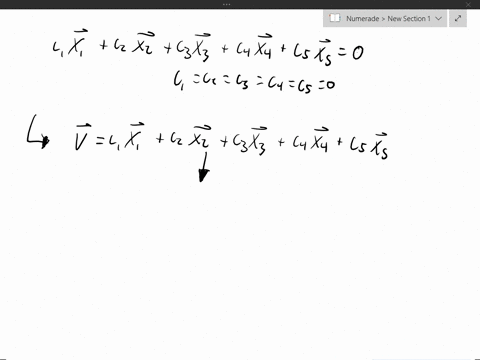 Numerade > New Section 1
c₁x⃗₁ + c₂x⃗₂ + c₃x⃗₃ + c₄x⃗₄ + c₅x⃗₅ = 0
c₁ = c₂ = c₃ = c₄ = c₅ = 0
↳ v⃗ = c₁x⃗₁ + c₂x⃗₂ + c₃x⃗₃ + c₄x⃗₄ + c₅x⃗₅